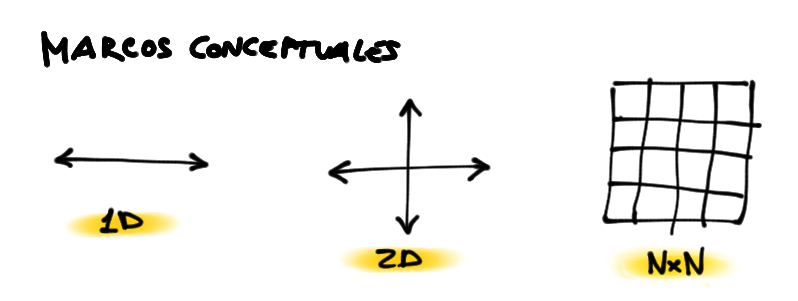 MARCOS CONCEPTUALES
1D
2D
NxN